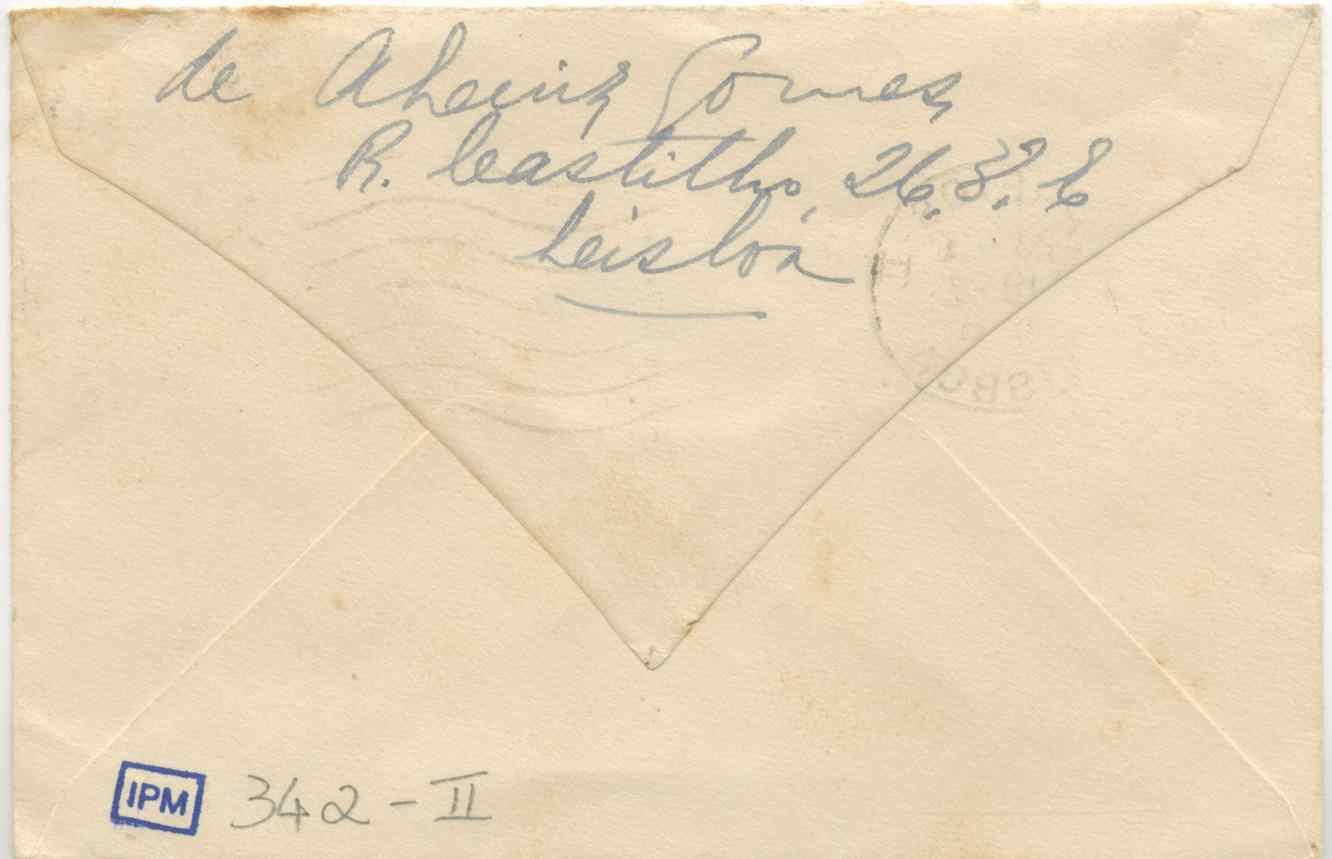 de A Luiz Gomes
R. Castilho, 26, 3º. E
Lisboa
IPM 342 - II